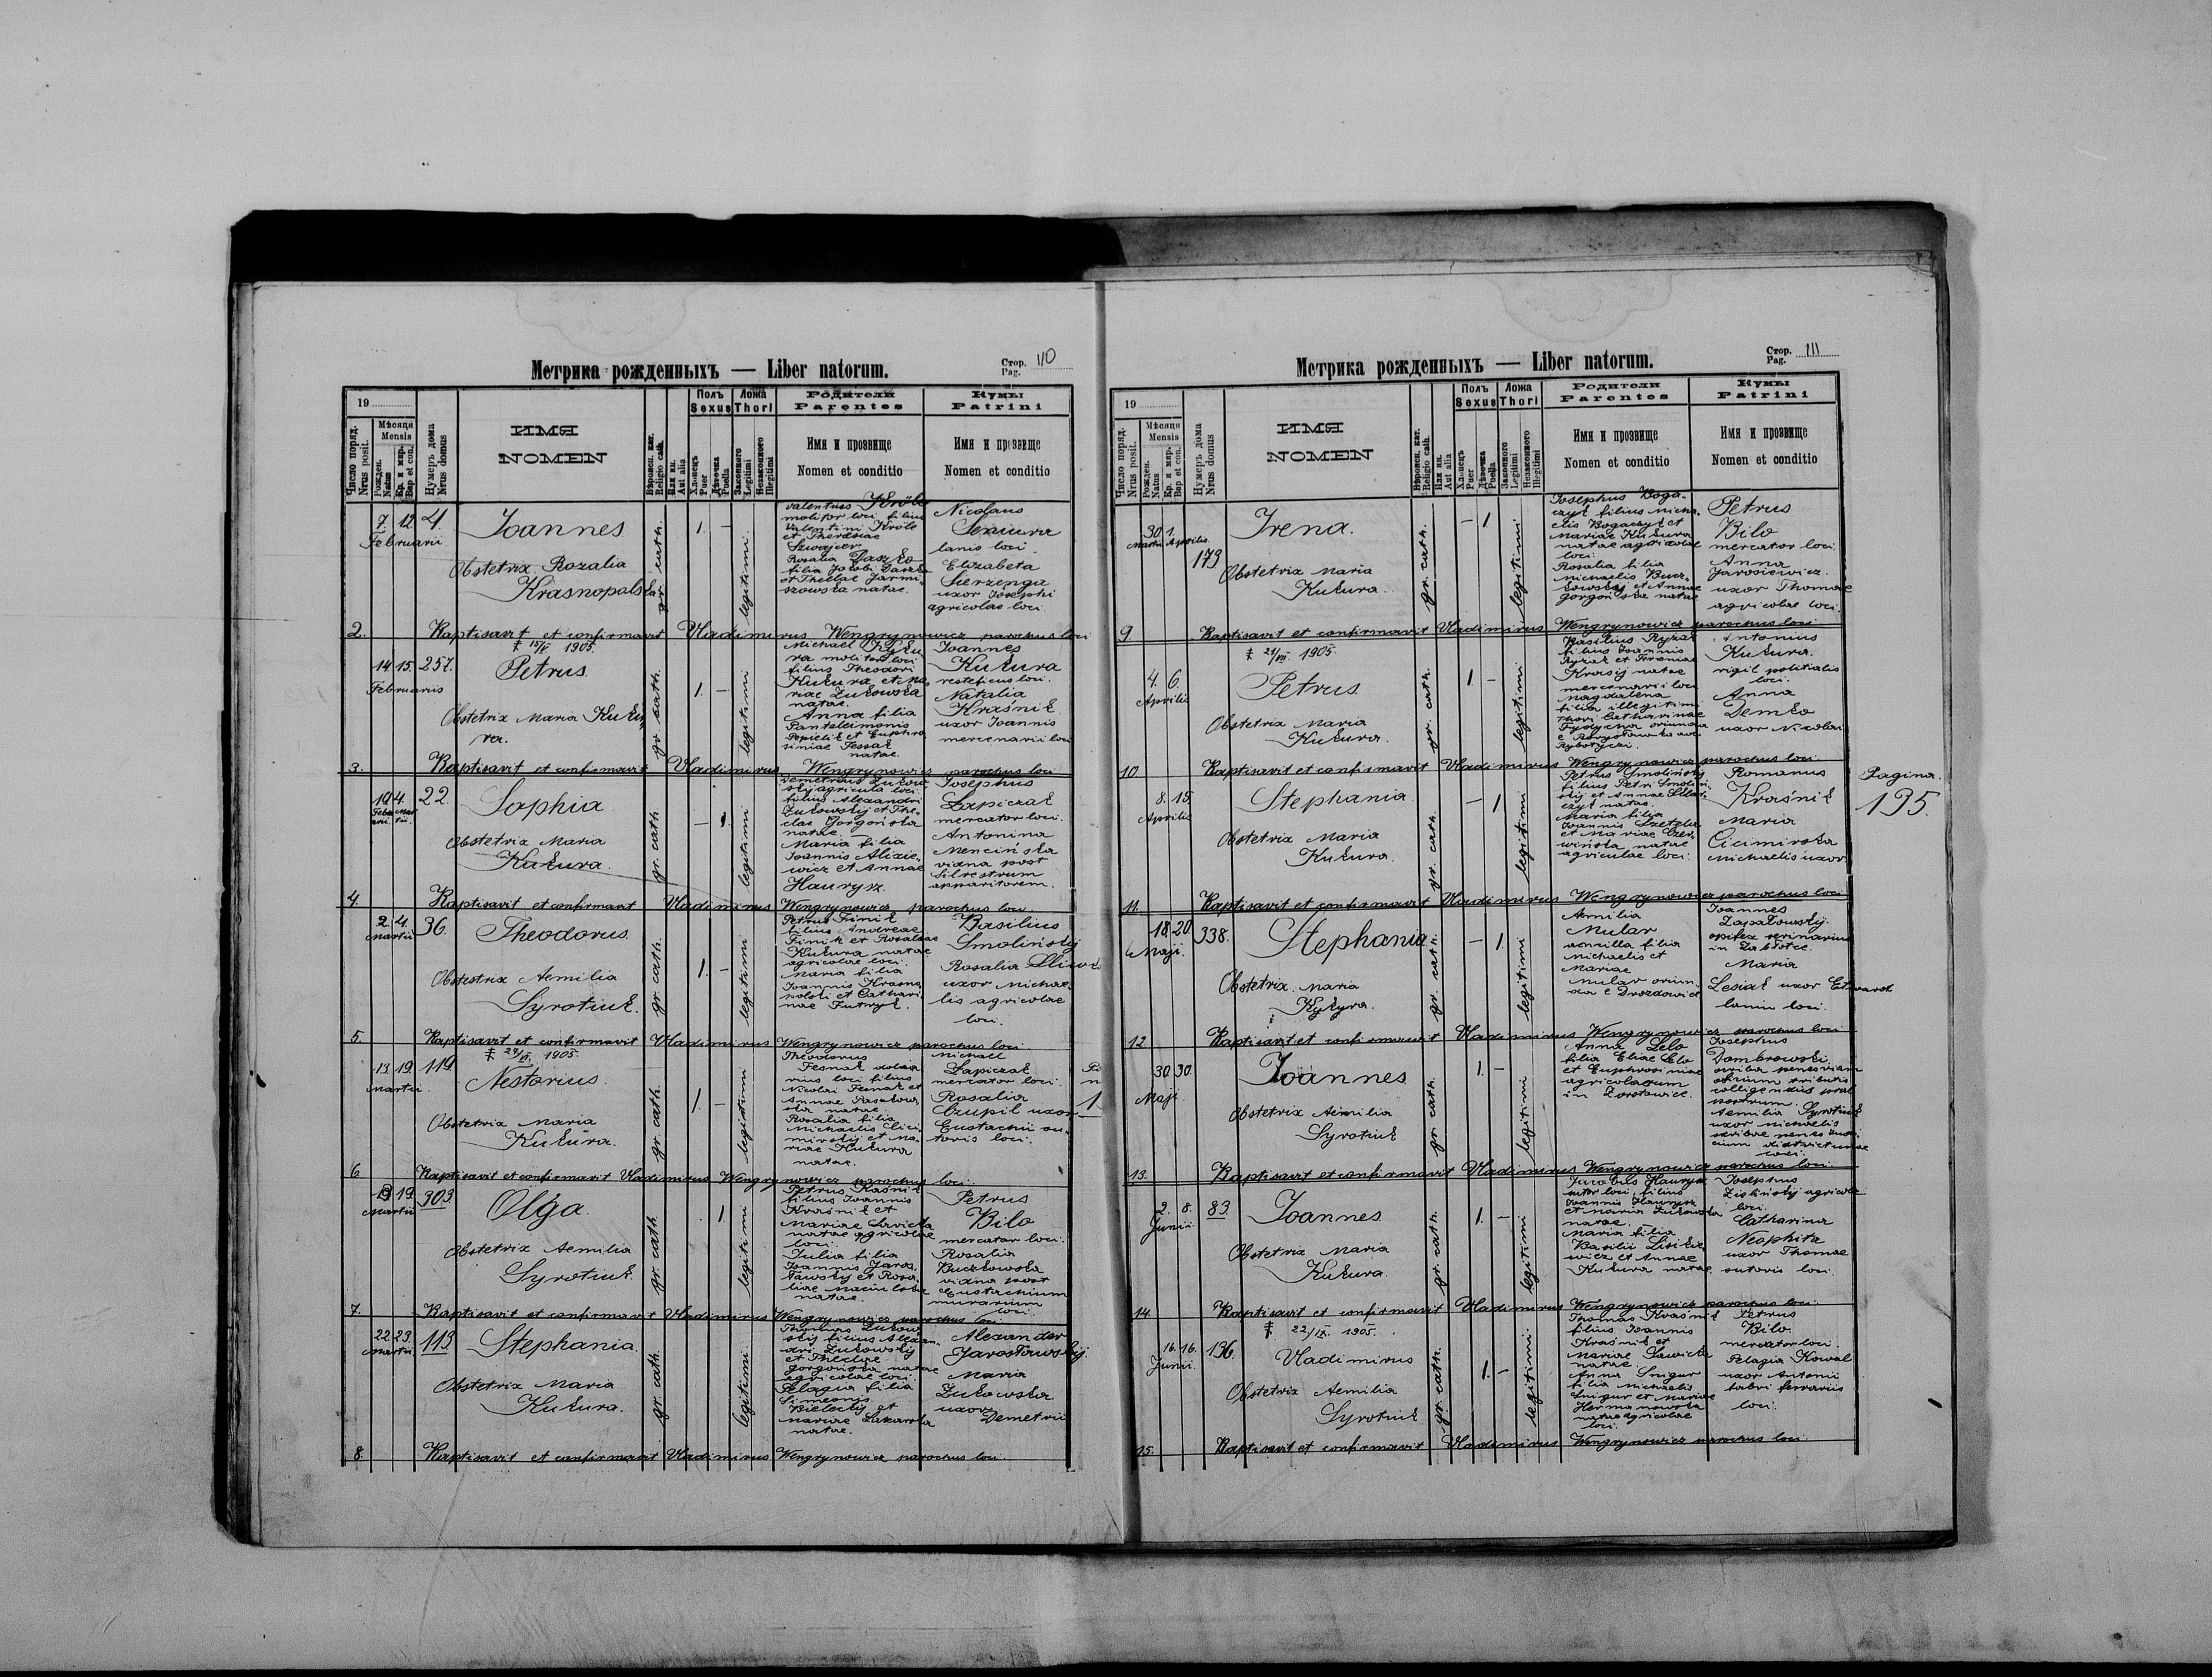 Метрика рожденныхъ — Liber natorum.
Стор. Pag. 110
19
Число поряд. Nrus posit.
Мѣсяця Mensis
Рожден. Natus
Кр. и мир. Bap et con.
Нумеръ дома Nrus domus
ИМЯ
NOMEN
Вѣроисп. кат. Religio cath.
Или ин. Aut alia
Полъ Sexus
Хлопецъ Puer
Дѣвочка Puella
Ложа Thori
Законного Legitimi
Незаконного Illegitimi
Родители
Parentes
Имя и прозвище
Nomen et conditio
Кумы
Patrini
Имя и прозвище
Nomen et conditio
7. 12. 4.
Februarii
Joannes
Obstetrix Rozalia
Krasnopolska
gr. cath.
1. —
legitimi.
Valentius Króle
molitor loci filius
Valentini Króle
et Theresiae
Szwajcer
Rosalia Daszko
filia Jacobi Daszko
et Theclae Jarmi-
szowska natae.
Nicolaus
lanio loci.
Elizabeta
Sierzenga
uxor Josephi
agricolae loci.
2. Baptisavit et confirmavit Vladimirus Wengrynowicz parochus loci
1905.
14 15. 257.
Februariis
Petrus.
Obstetrix Maria Kuku-
ra.
gr. cath.
1. —
legitimi
Michael Kuku
ra molitor loci
filius Theodori
Kukura et Ma-
riae Żukowska
natae.
Anna filia
Panteleimonis
Popielik et Euphro
siniae Fessak
natae
Joannes
Kukura
loci.
Natalia
Kraśnik
uxor Joannis
mercenarii loci
3. Baptisavit et confirmavit Vladimirus Wengrynowicz parochus loci
4. 22.
Sophia
Obstetrix Maria
Kukura.
gr. cath.
— 1.
legitimi
Demetrius Żukow
skij agricola loci
filius Alexandri
Żukowskij et The-
clae Gorgońska
natae.
Maria filia
Joannis Alixie-
wicz et Annae
Haurysz.
Josephus
Łapiczak
mercator loci.
Antonina
Mencińska
vidua post
Silvestrum
apparitorem.
4. Baptisavit et confirmavit Vladimirus Wengrynowicz parochus loci
2. 4. 36.
Martii
Theodorus.
Obstetrix Aemilia
Syrotiuk.
gr. cath.
1. —
legitimi
Petrus Finik
filius Andreae
Finik et Rosaliae
Kukura natae
agricolae loci.
Maria filia
Joannis Krasno
polski et Cathari
nae
Basilius
Smolińskij
Rosalia
uxor Michae
lis agricolae
loci.
5. Baptisavit et confirmavit Vladimirus Wengrynowicz parochus loci
1905.
13. 19. 119
Martii.
Nestorius.
Obstetrix Maria
Kukura.
gr. cath.
1. —
legitimi
Theodorus
Fesnak
rius loci filius
Nicolai Fesnak et
Annae
ska natae.
Rosalia filia
Michaelis Cici-
mirskij et Ma-
riae Kukura
natae.
Michael
Łapiczak
mercator loci.
Rosalia
Czupil uxor
Eustachii su-
toris loci.
1
6. Baptisavit et confirmavit Vladimirus Wengrynowicz parochus loci.
19 303
Martii
Olga.
Obstetrix Aemilia
Syrotiuk.
gr. cath.
1.
legitimi
Petrus Kraśnik
filius Joannis
Kraśnik et
Mariae Sawicka
natae agricolae
loci.
Julia filia
Joannis Jaros-
ławskij et Rosa-
liae
natae.
Petrus
Bilo
mercator loci.
Rosalia
Buczkowska
vidua post
Eustachium
murarium
loci.
7. Baptisavit et confirmavit Vladimirus Wengrynowicz parochus loci.
22. 23. 113
Martii
Stephania.
Obstetrix Maria
Kukura.
gr. cath.
legitimi
Thomas Żukow
skij filius Alexan-
dri Żukowskij
et Theclae
Gorgońska natae
agricolae loci.
Pelagia filia
Simeonis
Bieleckij et
Mariae
natae.
Alexander
Jarosławskij.
Maria
Żukowska
uxor
Demetrii
8. Baptisavit et confirmavit Vladimirus Wengrynowicz parochus loci.
Метрика рожденныхъ — Liber natorum.
Стор. Pag. 111
19
Число поряд. Nrus posit.
Мѣсяця Mensis
Рожден. Natus
Кр. и мир. Bap et con.
Нумеръ дома Nrus domus
ИМЯ
NOMEN
Вѣроисп. кат. Religio cath.
Или ин. Aut alia
Полъ Sexus
Хлопецъ Puer
Дѣвочка Puella
Ложа Thori
Законного Legitimi
Незаконного Illegitimi
Родители
Parentes
Имя и прозвище
Nomen et conditio
Кумы
Patrini
Имя и прозвище
Nomen et conditio
30. 1.
Martii Aprilis
179
Irena.
Obstetrix Maria
Kukura.
gr. cath.
— 1
legitimi
Josephus Boga-
czyk filius Micha-
elis Bogaczyk et
Mariae Kukura
natae agricolae
loci.
Rosalia filia
Michaelis Bucz-
kowskij et Annae
Gorgońska natae
Petrus
Bilo
mercator loci.
Anna
Jarosiewicz
uxor Thomae
agricolae loci.
9 Baptisavit et confirmavit Vladimirus Wengrynowicz parochus loci.
1905.
4. 6.
Aprilis
Petrus.
Obstetrix Maria
Kukura.
gr. cath.
1. —
legitimi
Basilius Ryzak
filius Joannis
Ryzak et
natae
mercenarii loci
Magdalena
filia illegitimi
thori Catharinae
oriunda
Rybotyczi.
Antonius
Kukura.
vigil politialis
loci.
Anna
Demko
uxor Nicolai
10. Baptisavit et confirmavit Vladimirus Wengrynowicz parochus loci.
8. 15.
Aprilis
Stephania.
Obstetrix Maria
Kukura.
gr. cath.
— 1
legitimi
Petrus Smolińskij
filius Petri Smoliń-
skij et Annae
natae.
Maria filia
Joannis Szetela
et Mariae Czer-
wińska natae
agricolae loci.
Romanus
Kraśnik
Maria
Cicimirska
Michaelis uxor
Pagina.
195.
11. Baptisavit et confirmavit Vladimirus Wengrynowicz parochus loci
18. 20 338.
Maji.
Stephania
Obstetrix Maria
Kykyra.
gr. cath.
— 1
legitimi
Aemilia
Mular
ancilla filia
Michaelis et
Mariae
Mular oriun-
da e Drozdowice
Joannes
Zapałowskij
opifex
in
Maria
Lesiak uxor Edward
lanii loci.
12 Baptisavit et confirmavit Vladimirus Wengrynowicz parochus loci
30. 30.
Maji
Joannes
Obstetrix Aemilia
Syrotiuk
gr. cath.
1. —
legitimi
Anna Lelo
filia Eliae Lelo
et Euphrosiniae
agricolarum
in
Josephus
Dombrowski
scriba
tributis
colligendis
Aemilia Syrotiuk
uxor Michaelis
scribae penes
loci.
13. Baptisavit et confirmavit Vladimirus Wengrynowicz parochus loci.
2. 8. 83.
Junii.
Joannes
Obstetrix Maria
Kukura.
gr. cath.
1. —
legitimi
Jacobus Haurysz
sutor loci, filius
Joannis Haurysz
et Maria Żukowska
natae.
Maria filia
Basilii
wicz et Annae
Kukura natae.
Josephus
agricola
loci.
Catharina
Neophita
uxor Thomae
sutoris loci.
14. Baptisavit et confirmavit Vladimirus Wengrynowicz parochus loci.
22/IX. 1905.
16. 16. 136.
Junii.
Vladimirus
Obstetrix Aemilia
Syrotiuk
gr. cath.
1. —
legitimi.
Thomas Kraśnik
filius Joannis
Kraśnik et
Mariae Sawicka
natae.
Anna Snigur
filia Michaelis
Snigur et Mariae
Hermanowska
natae agricolae
loci.
Petrus
Bilo.
mercator loci.
Pelagia Kowal
uxor Antonii
fabri ferrarii
loci.
15. Baptisavit et confirmavit Vladimirus Wengrynowicz parochus loci.